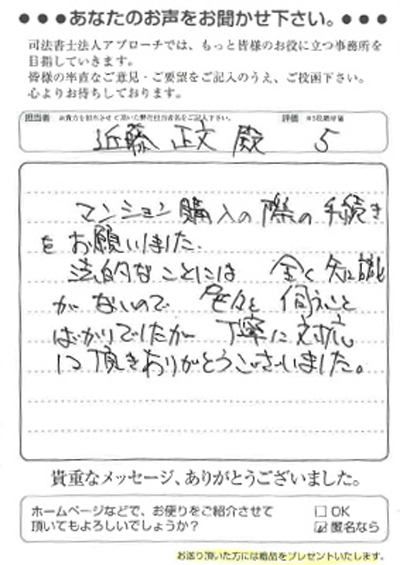 ●●●あなたのお声をお聞かせ下さい。●●●
司法書士法人アプローチでは、もっと皆様のお役に立つ事務所を
目指していきます。
皆様の率直なご意見・ご要望をご記入のうえ、ご投函下さい。
心よりお待ちしております。
担当者 お客様を担当させて頂いた弊社担当者名をご記入下さい。 評価 ※5段階評価
近藤 正文 殿 5
マンション購入の際の手続き
をお願いしました。
法的なことには 全く知識
がないので 色々と 伺うこと
ばかりでしたが 丁寧に対応
して頂きありがとうございました。
貴重なメッセージ、ありがとうございました。
ホームページなどで、お便りをご紹介させて
頂いてもよろしいでしょうか？
□ OK
☑ 匿名なら
お送り頂いた方には粗品をプレゼントいたします。